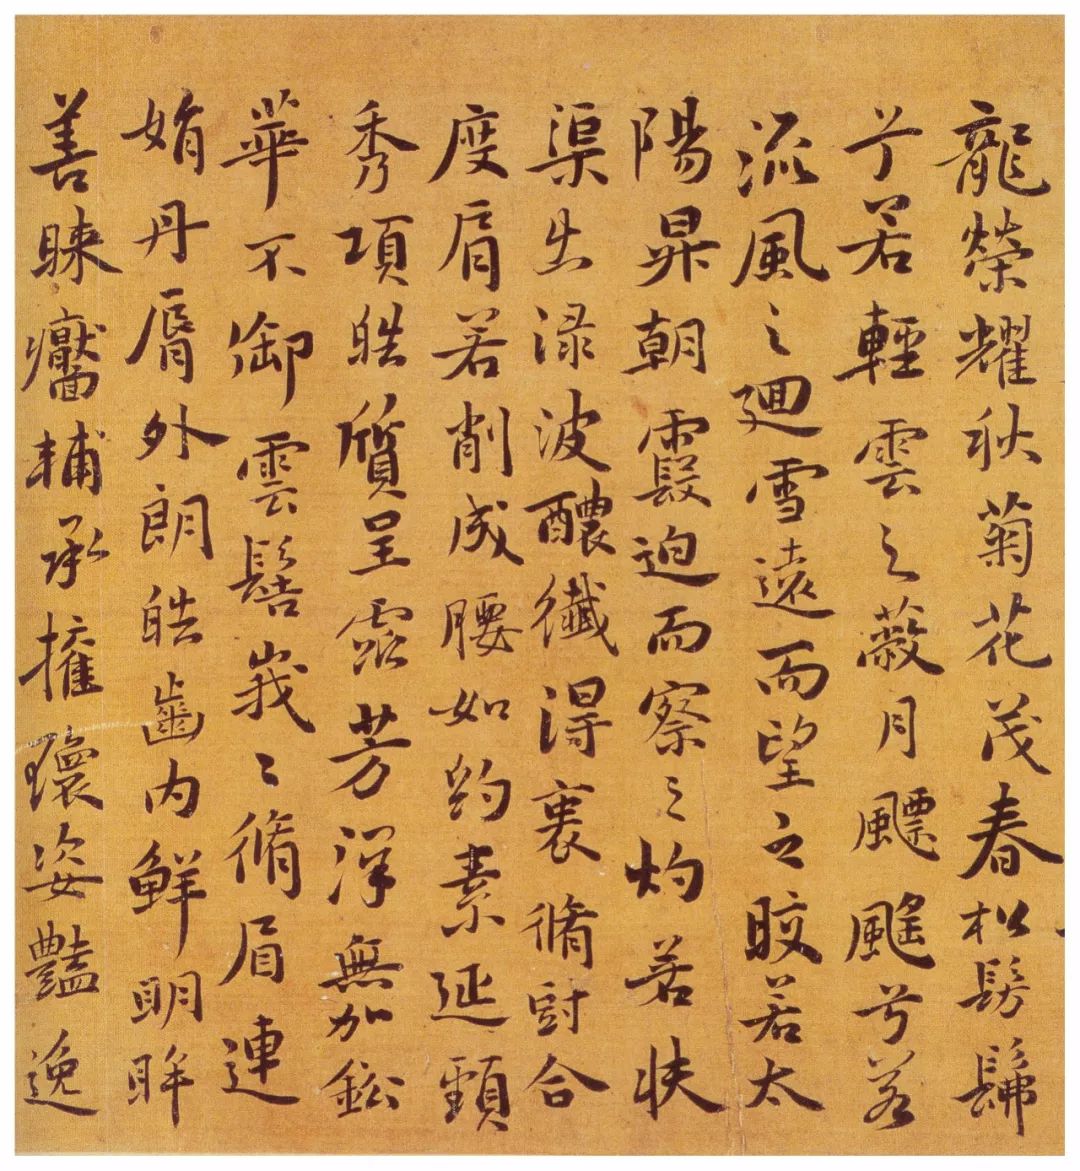 龍榮耀秋菊花茂春松髣髴
兮若輕雲之蔽月飄颻兮若
流風之廻雪遠而望之皎若太
陽昇朝霞迫而察之灼若扶
渠出渌波醲纖得衷脩尌合
度肩若削成腰如約素延頸
秀項皓質呈露芳澤無加鈆
華不御雲髻峩〻脩眉連
娟丹脣外朗皓齒内鮮明眸
善睞靨輔承擁瓌姿豔逸